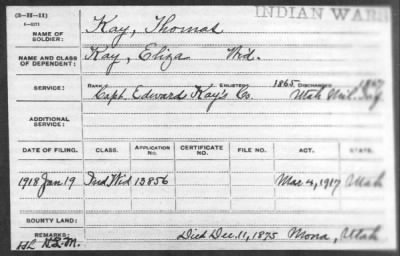 INDIAN WARS
(3-II-11)
NAME OF SOLDIER: Kay, Thomas
NAME AND CLASS OF DEPENDENT: Kay, Eliza Wid.
SERVICE: RANK ENLISTED 1865 DISCHARGED
Capt. Edward Kay's Co. Utah Mil. Inf
ADDITIONAL SERVICE:
DATE OF FILING. CLASS. APPLICATION No. CERTIFICATE NO. FILE NO. ACT. STATE.
1918 Jan 19 Ind Wid 13856 Mar 4, 1917 Utah
BOUNTY LAND:
REMARKS: Died Dec. 11, 1875 Mona, Utah